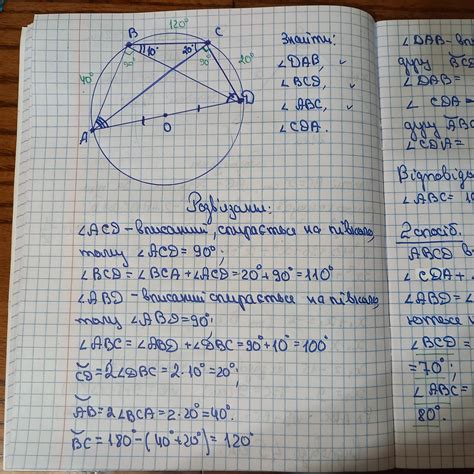 120°
B
C
10°
20°
90°
90°
20°
40°
D
A
O
Знайти:
∠DAB,
∠BCD,
∠ABC,
∠CDA.
Розв'язання:
∠ACD - вписаний, спирається на півколо,
тому ∠ACD = 90°;
∠BCD = ∠BCA + ∠ACD = 20° + 90° = 110°
∠ABD - вписаний спирається на півколо,
тому ∠ABD = 90°;
∠ABC = ∠ABD + ∠DBC = 90° + 10° = 100°
CD = 2∠DBC = 2·10° = 20°;
AB = 2∠BCA = 2·20° = 40°.
BC = 180° - (40° + 20°) = 120°
∠DAB - впи
дугу BCD
∠DAB =
∠CDA =
дугу ABC
∠CDA =
Відповідь
∠ABC = 10
2 спосіб.
ABCD в
∠CDA +
∠ABD = ∠
ються
∠BCD =
= 70°;
∠ABC =
80°.